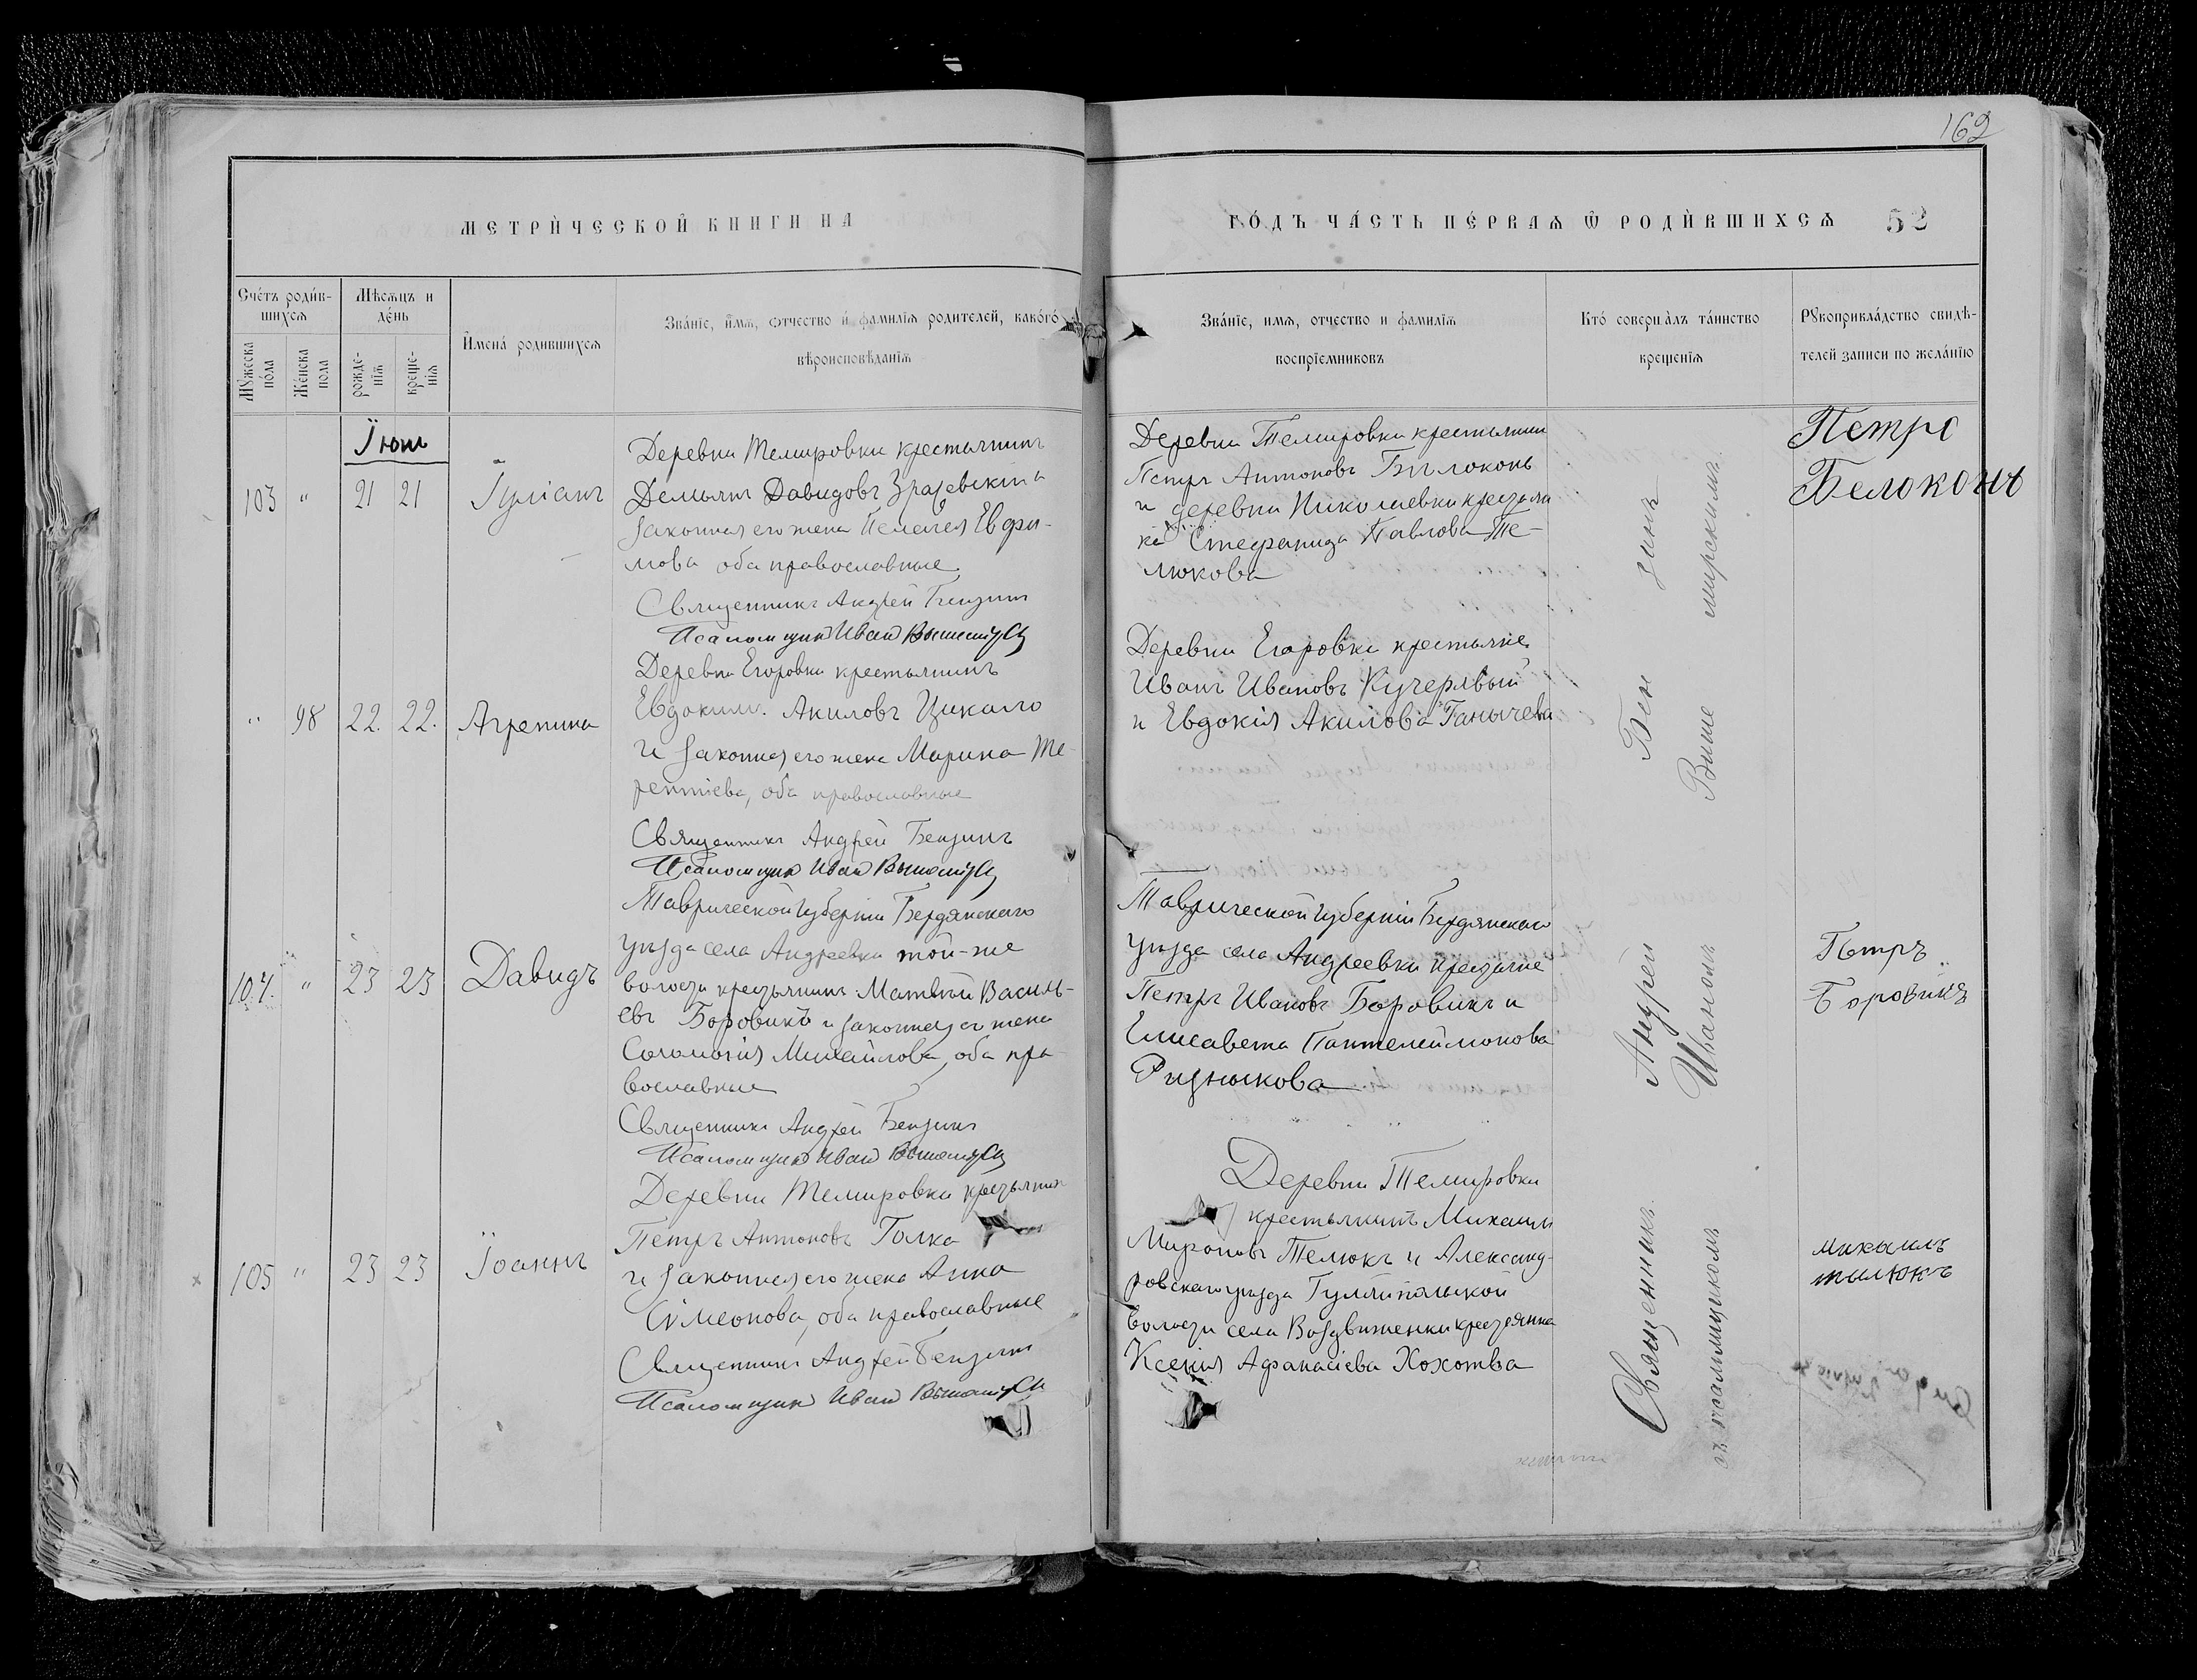 162
МЕТРИ́ЧЕСКОЙ КНИГИ НА
ГО́ДЪ ЧА́СТЬ ПЕ́РВАѦ Ѿ РОДИ́ВШИХСѦ 52
Сче́тъ роди́в-
шихсѧ
Мѣсѧцъ и
де́нь
И҆мена́ родившихсѧ
Зва́нїе, и҆́мѧ, ѻтчество и҆ фамилїѧ родителей, како́гѡ
вѣроисповѣданїѧ
Зва́нїе, имѧ, отчество и фамилїѧ
воспрїемниковъ
Кто́ соверша́лъ та́инство
крещенїѧ
Рꙋкоприкла́дство свидѣ-
телей записи по жела́нїю
Мꙋ́жеска
по́ла
Же́нска
пола
рожде-
нїѧ
креще-
нїѧ
Їюнь
103 " 21 21 Іуліанъ
Деревни Темировки крестьянинъ
Демьянъ Давидовъ Зражевскій и
законная его жена Пелагея Евфи-
мова оба православные
Священникъ Андрей Бензинъ
Псаломщик Иван
Деревни Темировки крестьянин
Петръ Антоновъ Бѣлоконь
и деревни Николаевки крестьян
ка Стефанида Павлова Те-
люкова
Петро
Белоконь
" 98 22. 22. Агрепина
Деревни Егоровки крестьянинъ
Евдокимъ Акиловъ Цикало
и законная его жена Марина Те-
рентіева, оба православные
Священникъ Андрей Бензинъ
Псаломщик Иван
Деревни Егоровки крестьяне
Иванъ Ивановъ Кучерявый
и Евдокія Акилова Ганычева
104. " 23 23 Давидъ
Таврической губерніи Бердянскаго
уѣзда села Андреевки той-же
волости крестьянинъ Матвѣй Василь-
евъ Боровикъ и законная его жена
Соломонія Михайлова, оба пра-
вославные
Священникъ Андрей Бензинъ
Псаломщик Иван
Таврической губерніи Бердянскаго
уѣзда села Андреевки крестьяне
Петръ Ивановъ Боровикъ и
Елисавета Пантелеймонова
Ризныкова
Петръ
Боровикъ
105 " 23 23 Іоаннъ
Деревни Темировки крестьянин
Петръ Антоновъ Голка
и законная его жена Анна
Сѵмеонова, оба православные
Священникъ Андрей Бензинъ
Псаломщик Иван
Деревни Темировки
крестьянинъ Михаилъ
Мироновъ Телюкъ и Александ-
ровскаго уѣзда Гуляйпольской
волости села Воздвиженки крестьянка
Ксенія Афанасіева Хохотва
Михаилъ
тилюкъ
Священникъ Андрей Бензинъ
съ псаломщикомъ Иваномъ Вышемирскимъ.